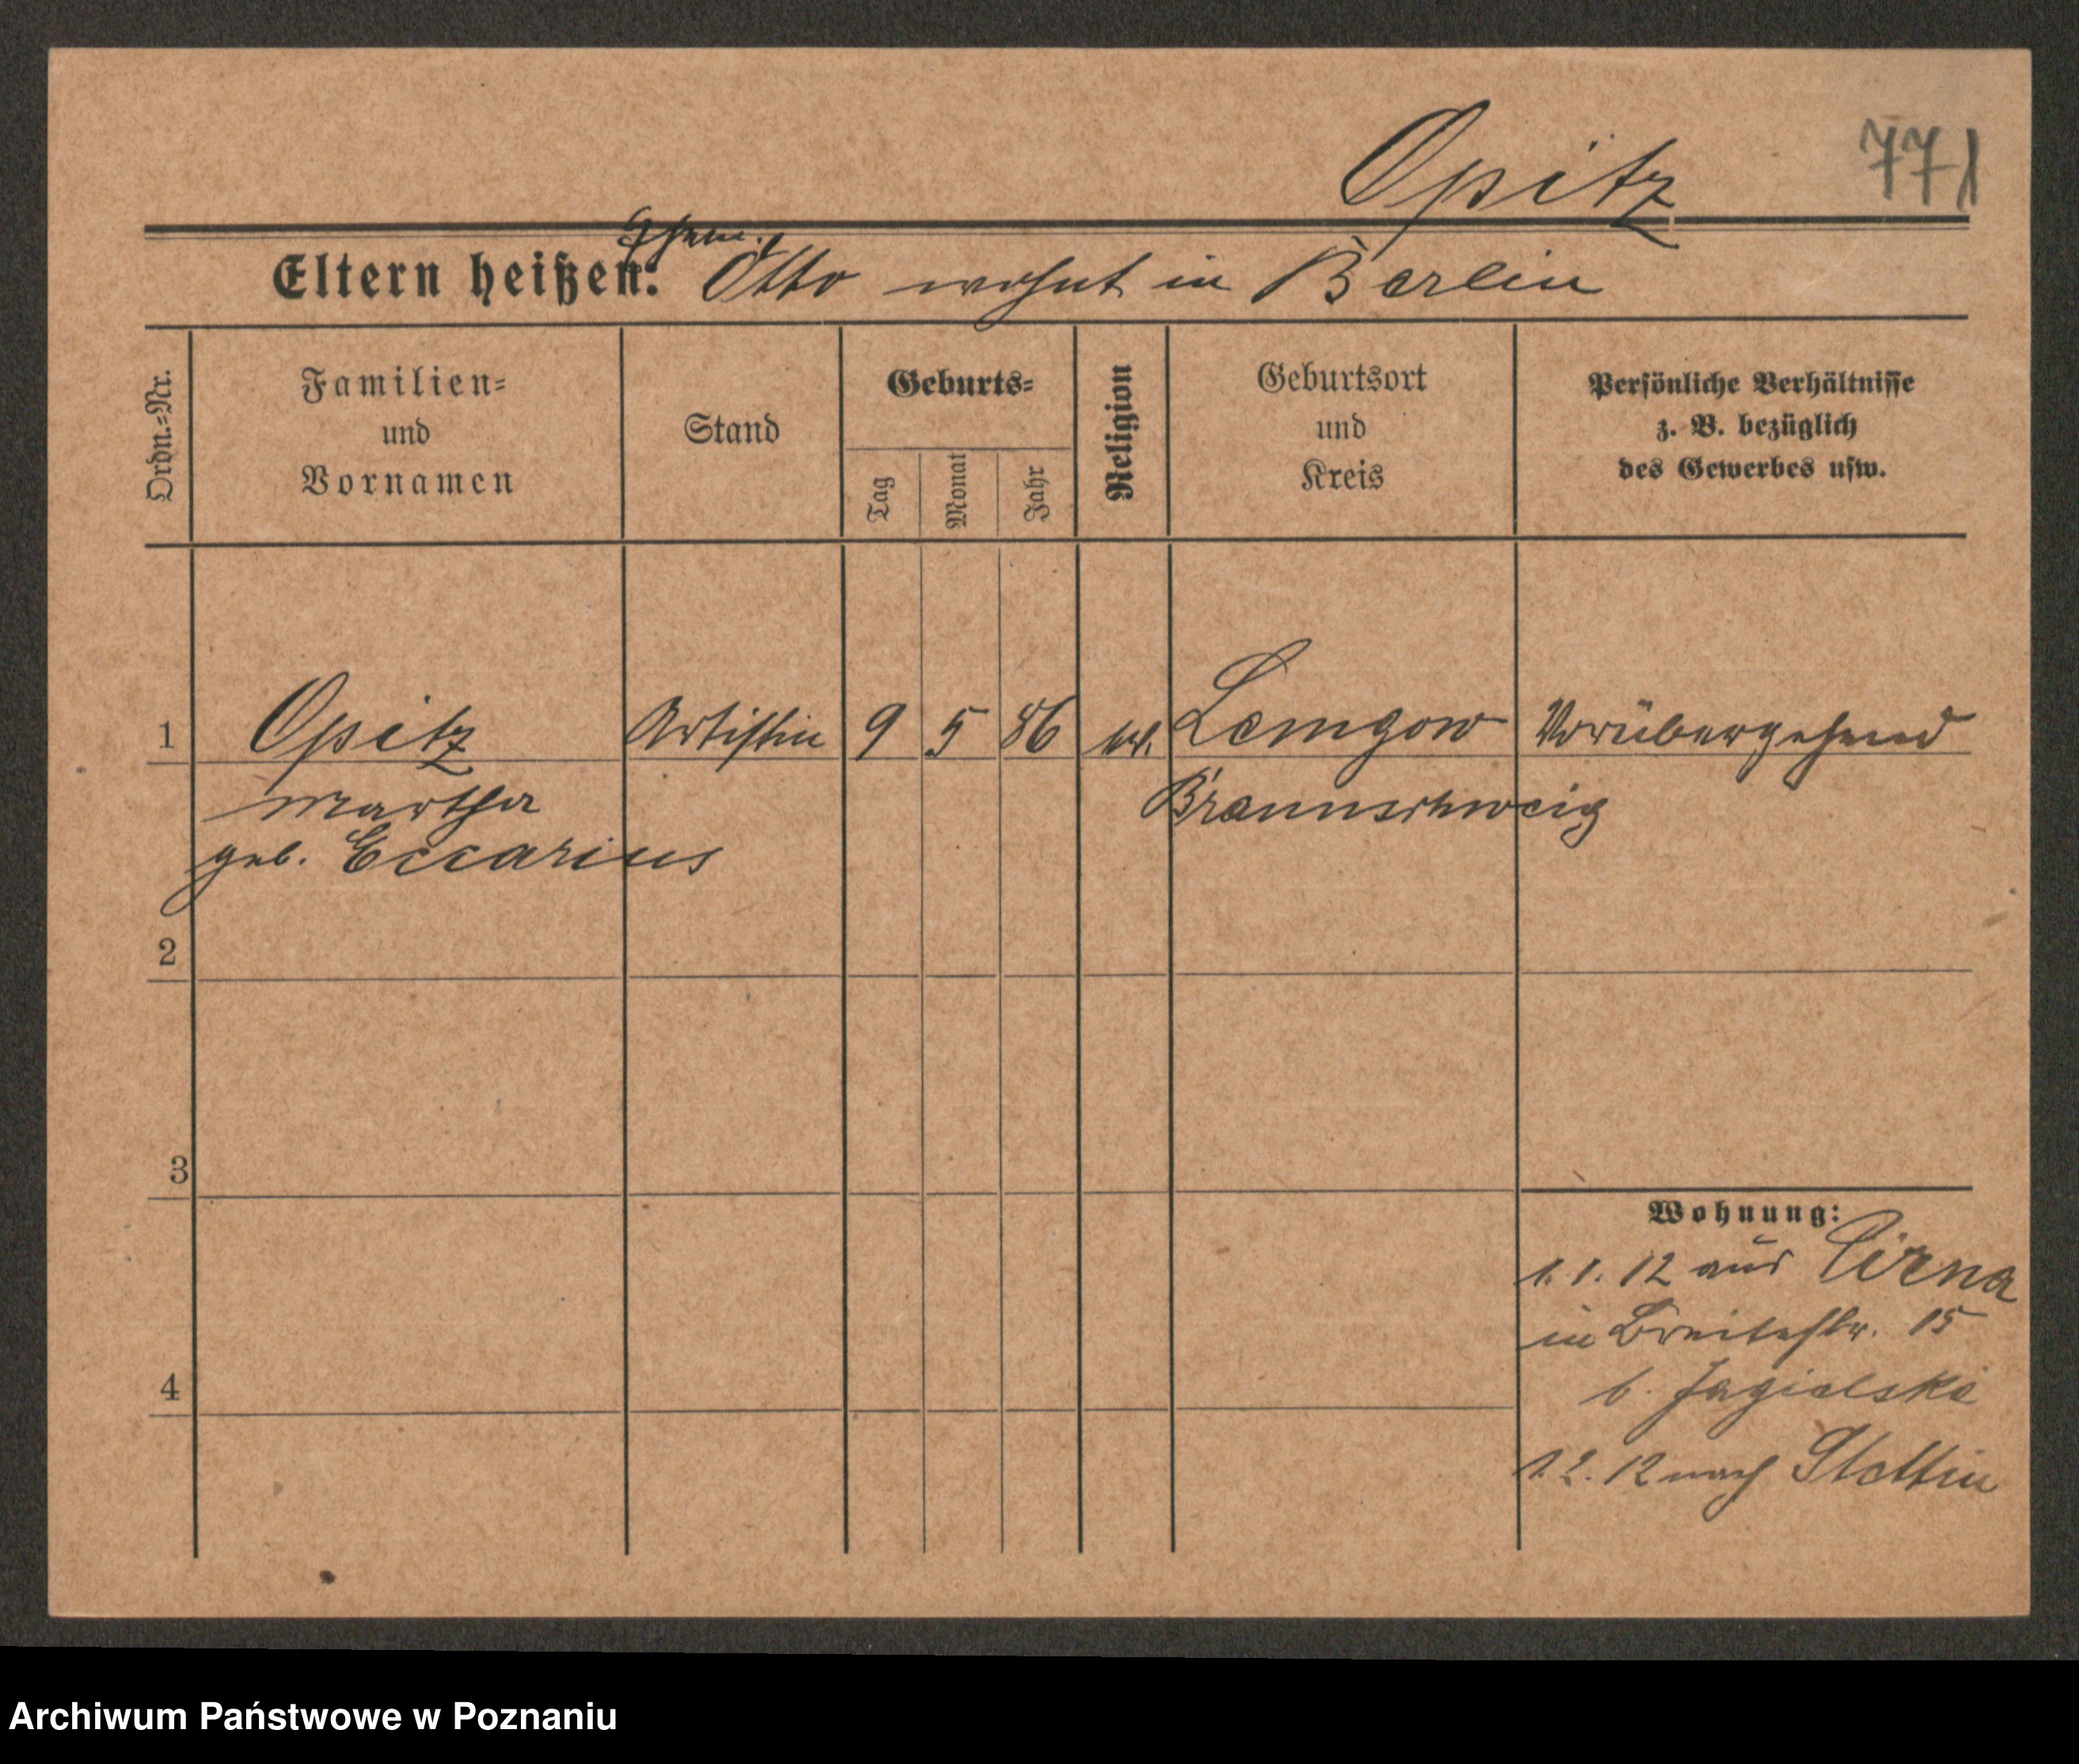 Opitz
771
Ehem.
Eltern heißen: Otto wohnt in Berlin
Ordn.=Nr.
Familien=
und
Vornamen
Stand
Geburts=
Tag
Monat
Jahr
Religion
Geburtsort
und
Kreis
Persönliche Verhältnisse
z. B. bezüglich
des Gewerbes usw.
1 Opitz Artistin 9 5 86 Lemgow Vorübergehend
Martha Braunschweig
geb. Eccarius
2
3
Wohnung:
1. 1. 12 aus Pirna
in Breitestr. 15
b. Jagielski
4
1. 2. 12 nach Stettin
Archiwum Państwowe w Poznaniu